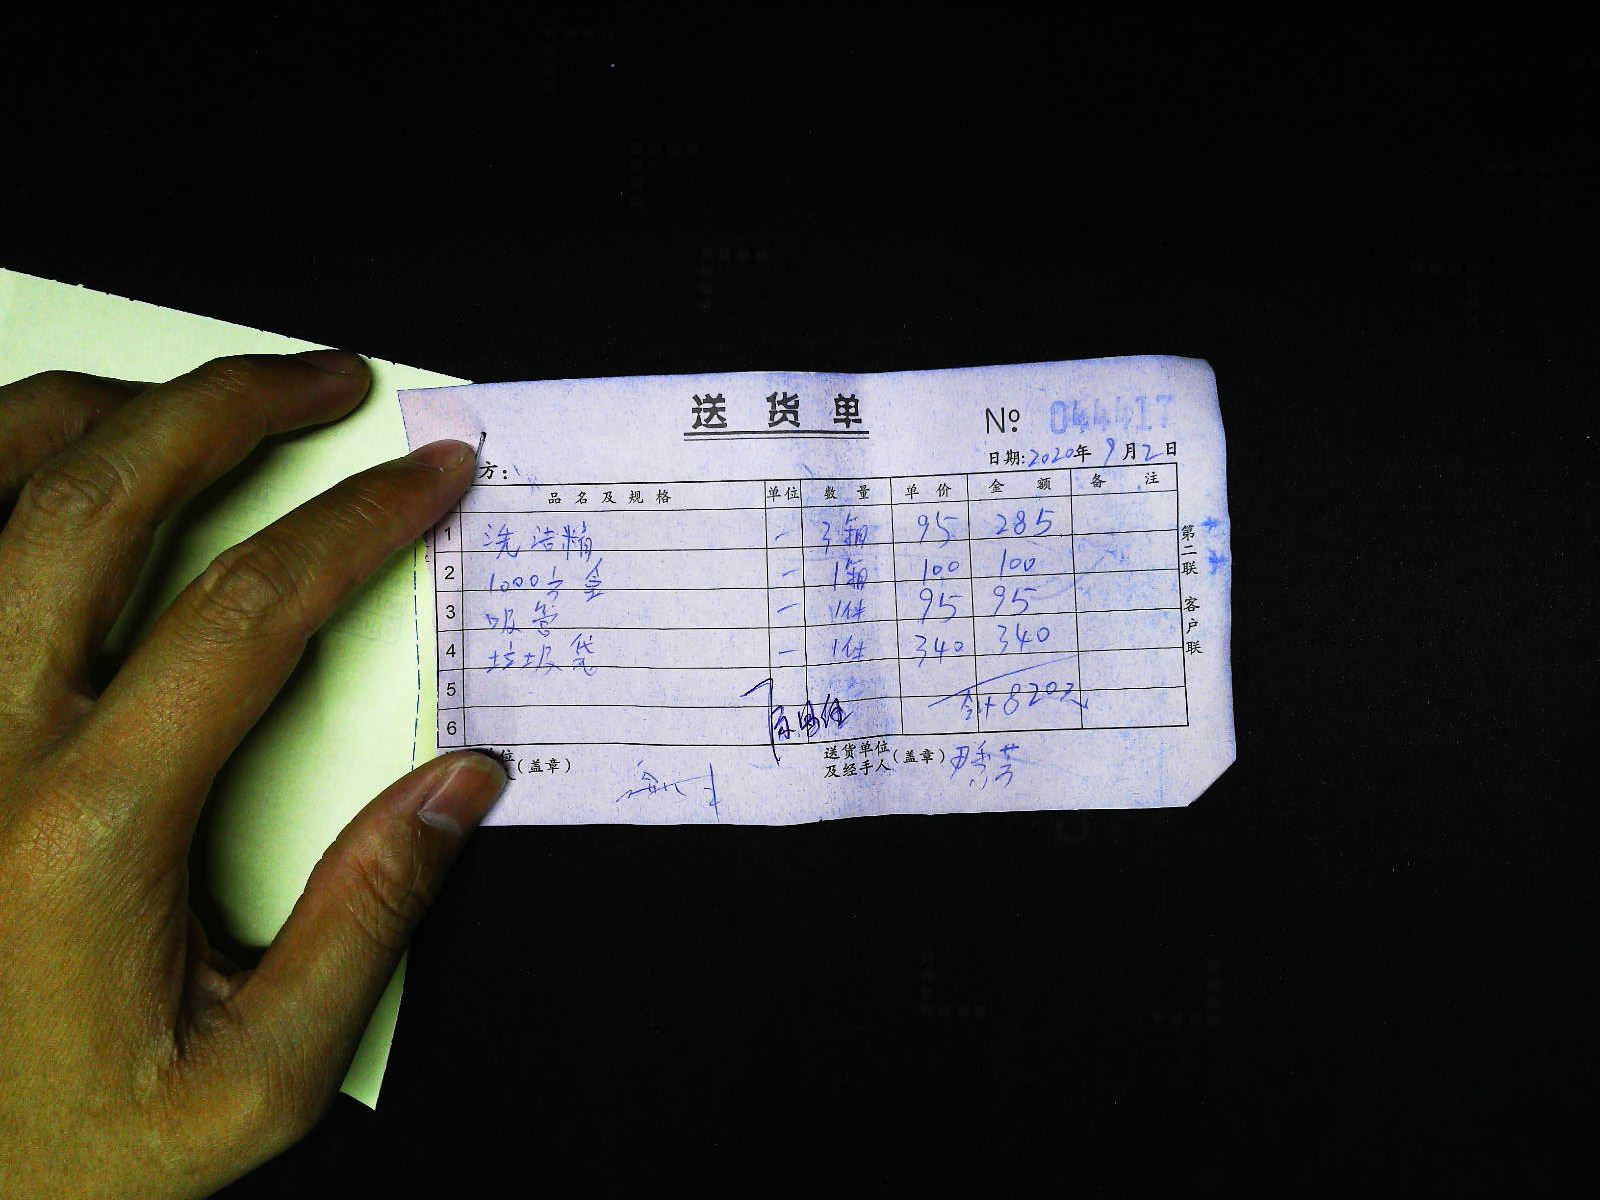 送货单
№ 044417
日期:2020年9月2日
方:
品名及规格 单位 数量 单价 金额 备注
1 洗洁精 - 3箱 95 285
2 1000方盒 - 1箱 100 100
3 吸管 - 1件 95 95
4 垃圾袋 - 1件 340 340
5
6 合计820元
位
人(盖章)
送货单位
及经手人(盖章)
第二联 客户联